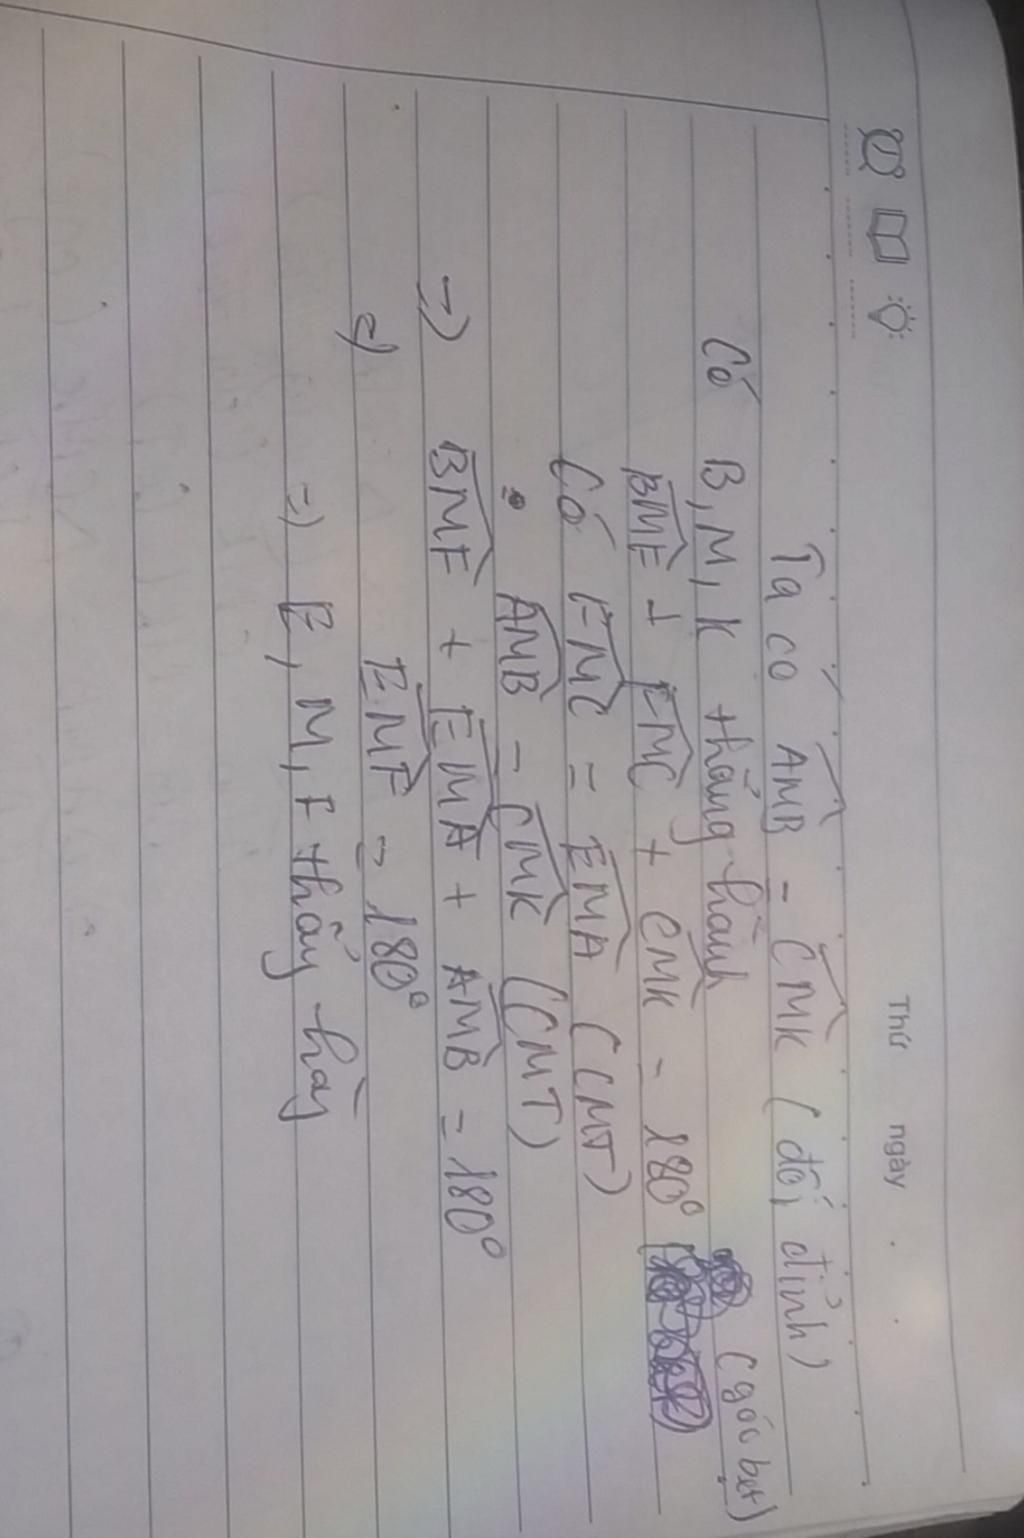 Thứ ngày
Ta có AMB = CMK (đối đỉnh)
Có B, M, K thẳng hàng
BMF + FMC + CMK = 180° (góc bẹt)
Có FMC = EMA (CMT)
AMB = CMK (CMT)
=) BMF + EMA + AMB = 180°
=) EMF = 180°
=) E, M, F thẳng hàng